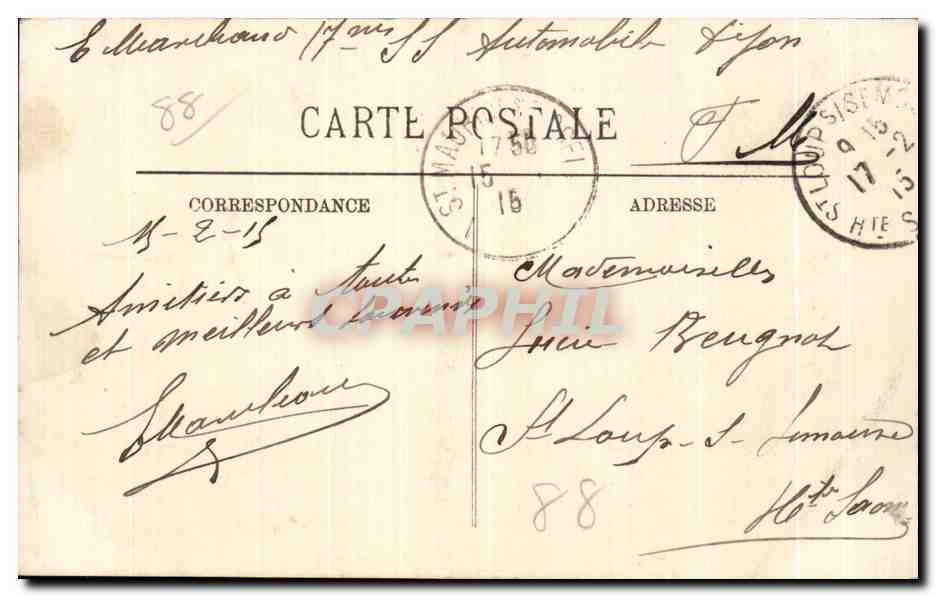 E Marchand 17me SS Automobile Dijon
88
CARTE POSTALE
F M
ST. MAUR
17 50
15
15
ST LOUP S/SEMO
9 15
17 -2
15
HTE S
CORRESPONDANCE
ADRESSE
15-2-15
Amitiés à toute
et meilleurs souvenirs
EMarchand
Mademoiselle
Lucie Beugnot
St Loup-s-Semouse
Hte Saone
88
CPAPHIL